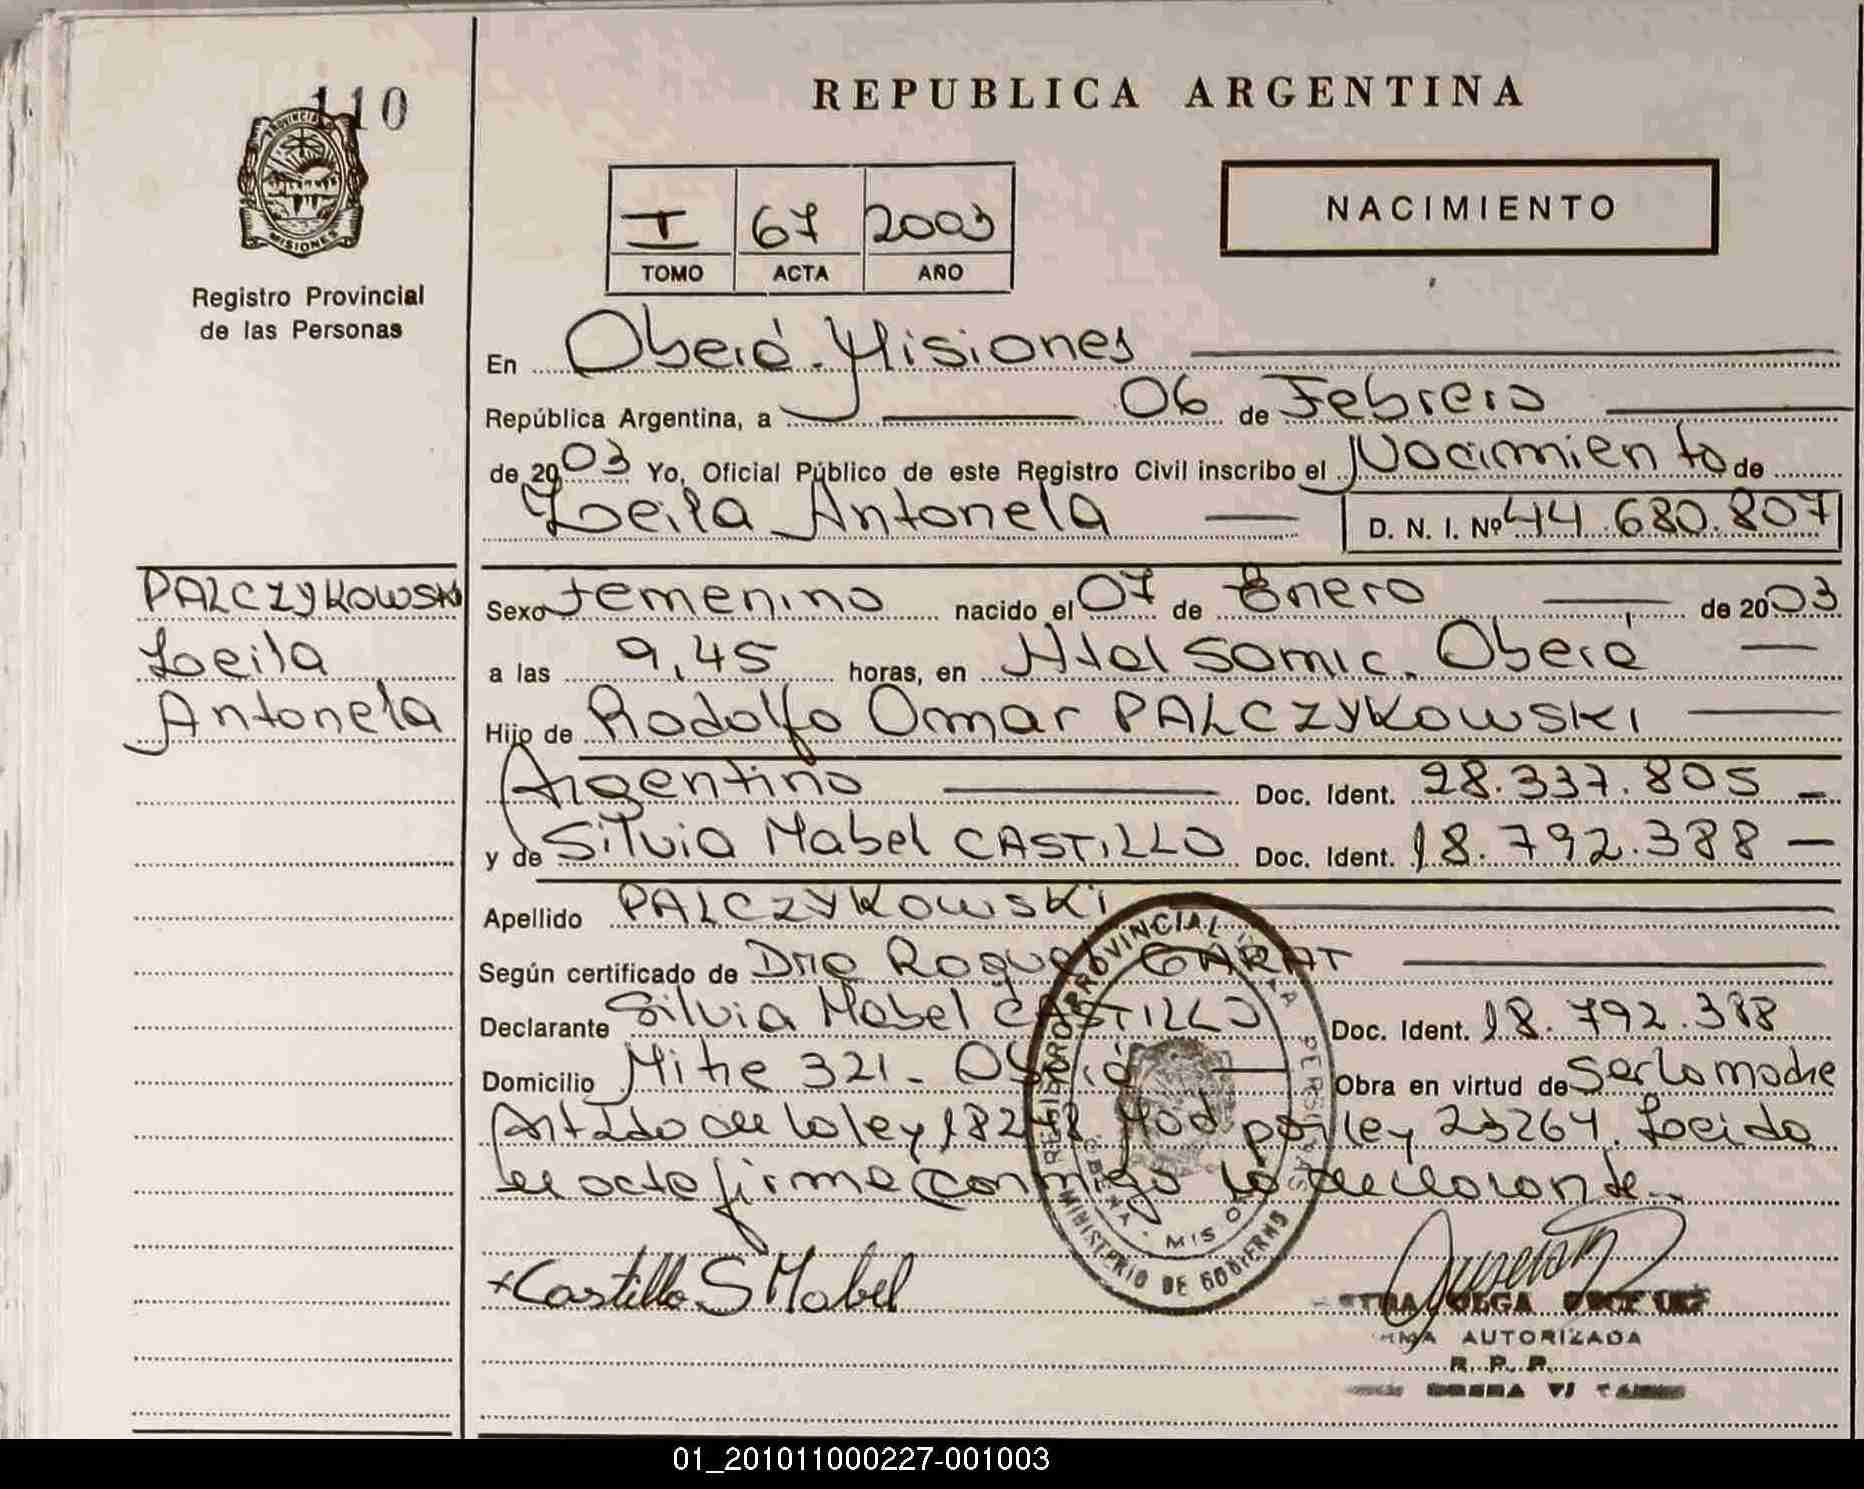 110
PROVINCIA
MISIONES
Registro Provincial
de las Personas
REPUBLICA ARGENTINA
I 67 2003
TOMO ACTA AÑO
NACIMIENTO
En Oberá - Misiones
República Argentina, a 06 de Febrero
de 2003 Yo, Oficial Público de este Registro Civil inscribo el Nacimiento de
Leila Antonela D. N. I. Nº 44.680.807
PALCZYKOWSKI
Leila
Antonela
Sexo Femenino nacido el 07 de Enero de 2003
a las 9,45 horas, en Htal Samic. Oberá
Hijo de Rodolfo Omar PALCZYKOWSKI
Argentino Doc. Ident. 28.337.805
y de Silvia Mabel CASTILLO Doc. Ident. 18.792.388
Apellido PALCZYKOWSKI
Según certificado de Dra Raquel GARAT
Declarante Silvia Mabel CASTILLO Doc. Ident. 18.792.388
Domicilio Mitre 321 - Oberá Obra en virtud de Ser la madre
Art 2do de la ley 18248 Mod por ley 23264. Leida
el acta firma conmigo la declarante.
REGISTRO PROVINCIAL DE PERSONAS
MINISTERIO DE GOBIERNO
Castillo S Mabel
OLGA
AUTORIZADA
R. P. P.
01_201011000227-001003